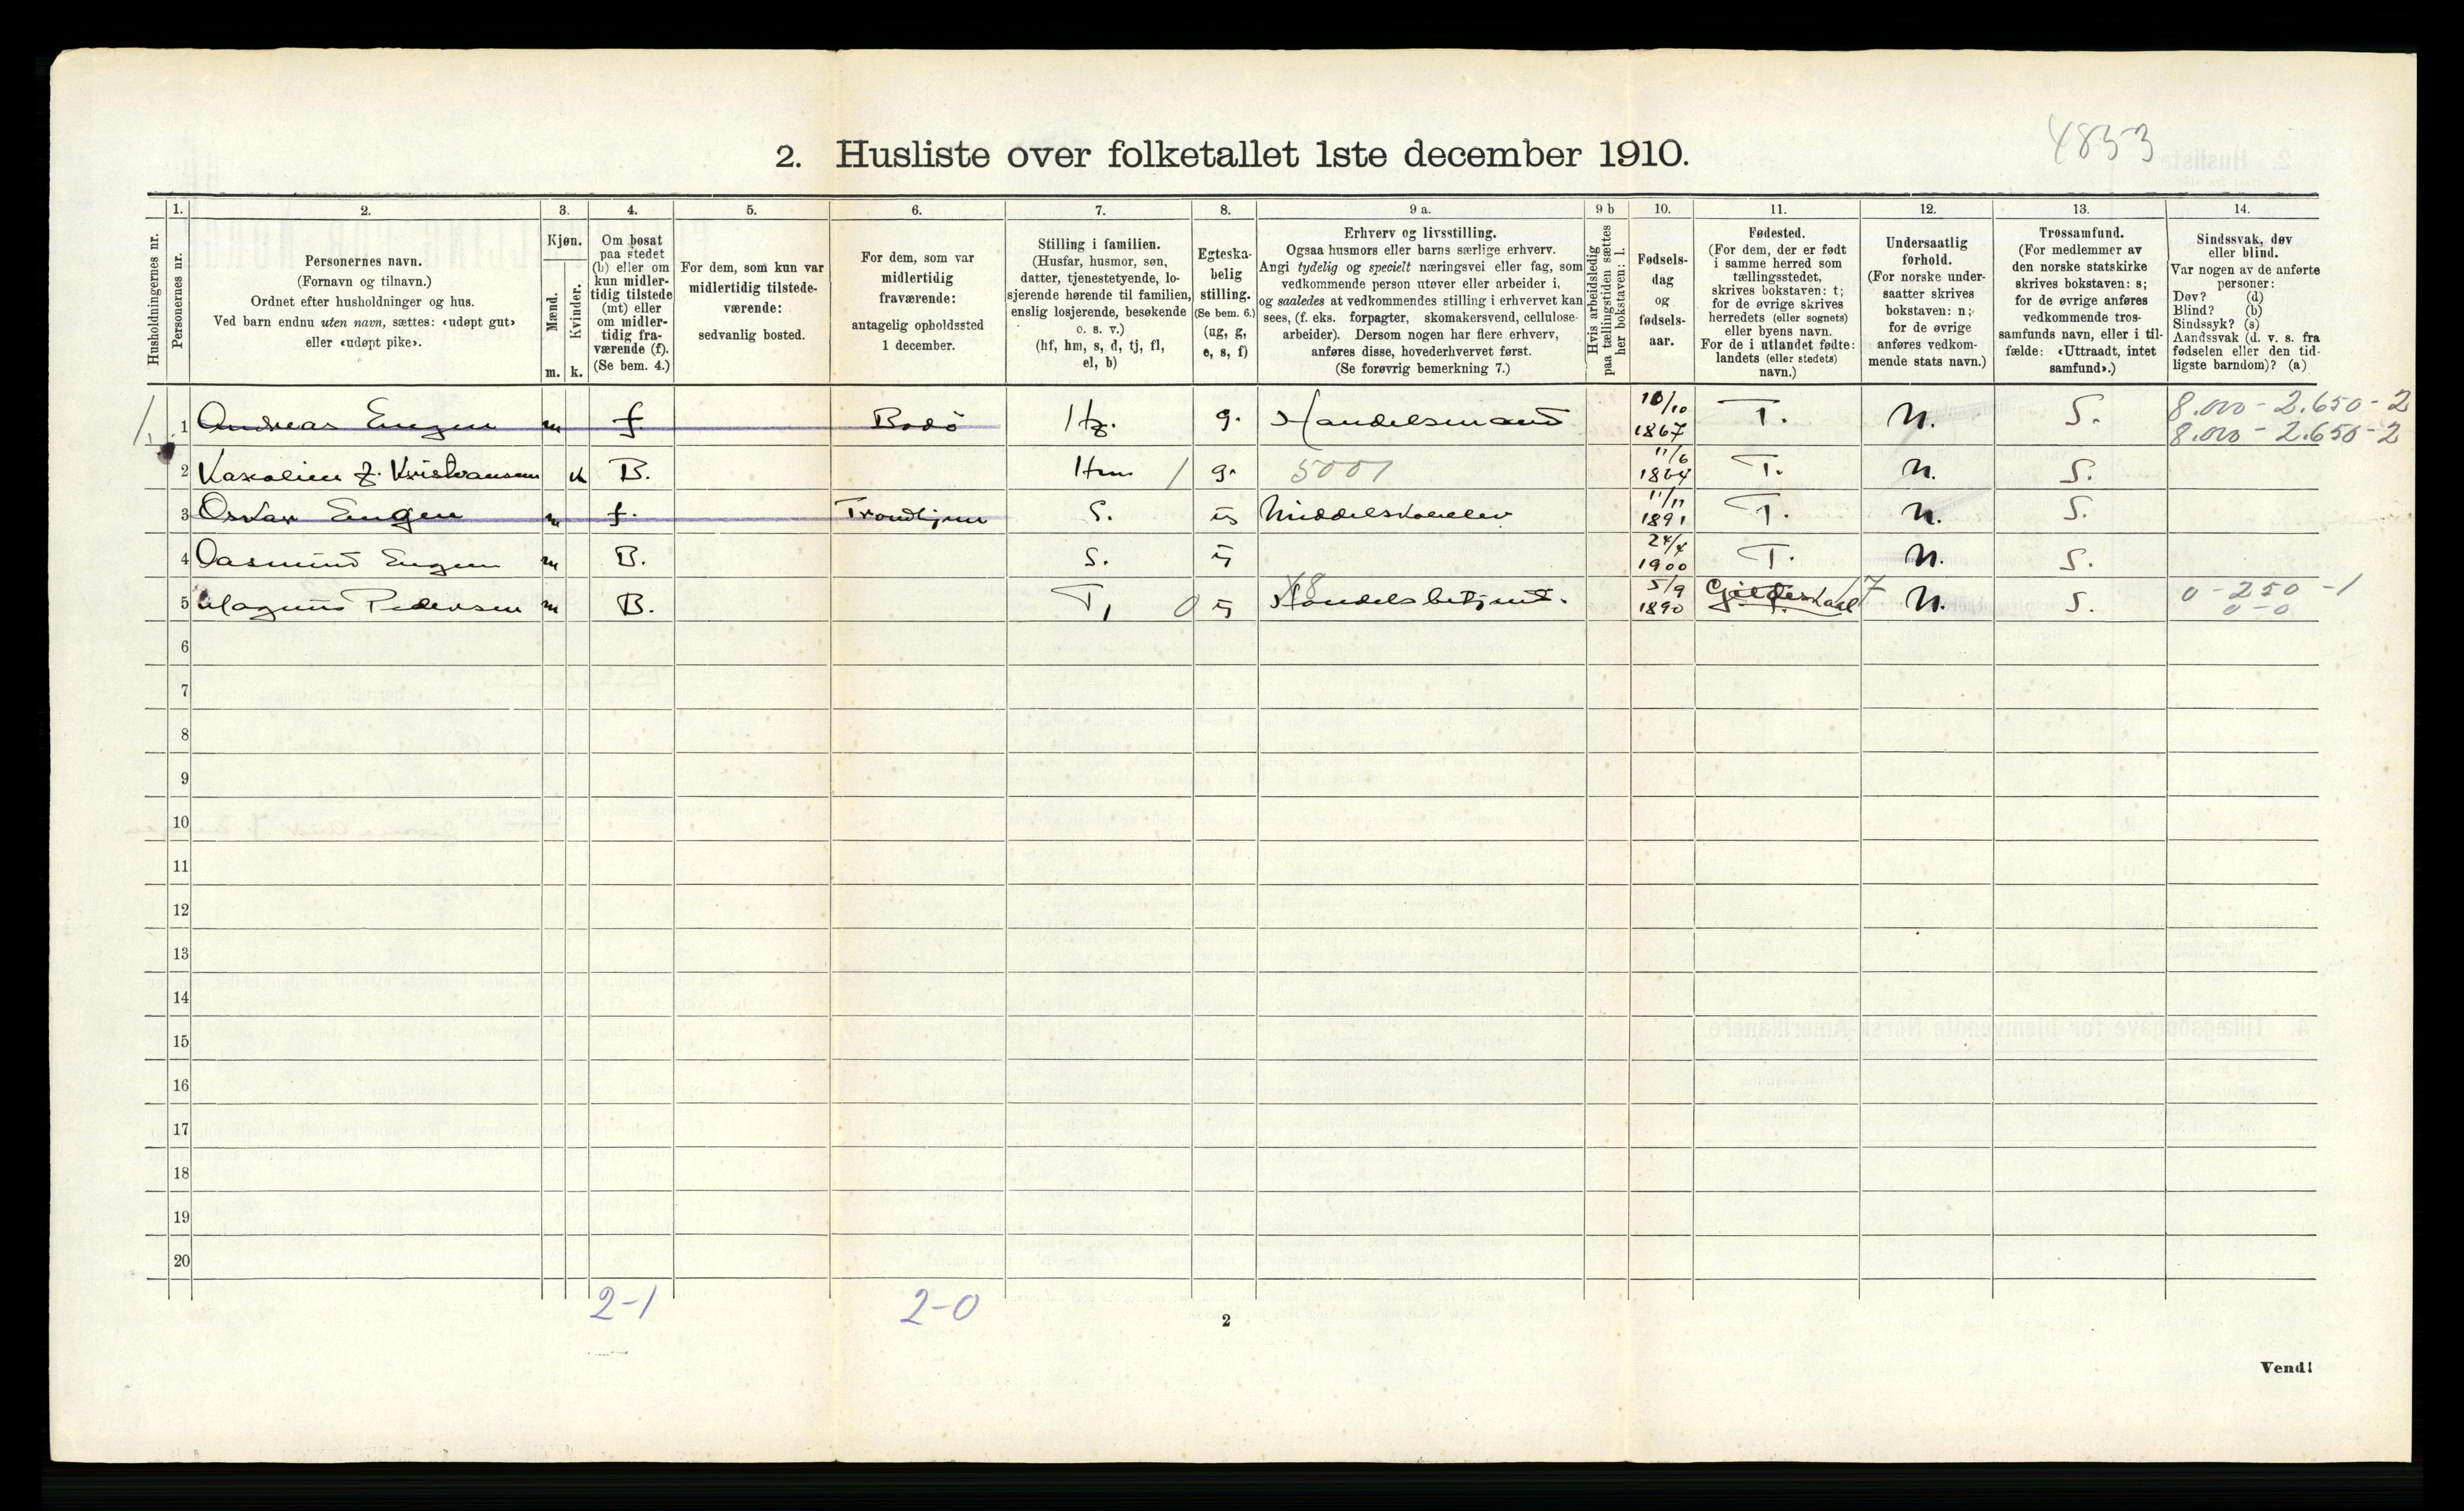 4853
2. Husliste over folketallet 1ste december 1910.
Husholdningernes nr.
1.
Personernes nr.
2.
Personernes navn.
(Fornavn og tilnavn.)
Ordnet efter husholdninger og hus.
Ved barn endnu uten navn, sættes: «udøpt gut»
eller «udøpt pike».
3.
Kjøn.
Mænd.
Kvinder.
m. k.
4.
Om bosat
paa stedet
(b) eller om
kun midler-
tidig tilstede
(mt) eller
om midler-
tidig fra-
værende (f).
(Se bem. 4.)
5.
For dem, som kun var
midlertidig tilstede-
værende:
sedvanlig bosted.
6.
For dem, som var
midlertidig
fraværende:
antagelig opholdssted
1 december.
7.
Stilling i familien.
(Husfar, husmor, søn,
datter, tjenestetyende, lo-
sjerende hørende til familien,
enslig losjerende, besøkende
o. s. v.)
(hf, hm, s, d, tj, fl,
el, b)
8.
Egteska-
belig
stilling.
(Se bem. 6.)
(ug, g,
e, s, f)
9 a.
Erhverv og livsstilling.
Ogsaa husmors eller barns særlige erhverv.
Angi tydelig og specielt næringsvei eller fag, som
vedkommende person utøver eller arbeider i,
og saaledes at vedkommendes stilling i erhvervet kan
sees, (f. eks. forpagter, skomakersvend, cellulose-
arbeider). Dersom nogen har flere erhverv,
anføres disse, hovederhvervet først.
(Se forøvrig bemerkning 7.)
9 b
Hvis arbeidsledig
paa tællingstiden sættes
her bokstaven: l.
10.
Fødsels-
dag
og
fødsels-
aar.
11.
Fødested.
(For dem, der er født
i samme herred som
tællingsstedet,
skrives bokstaven: t;
for de øvrige skrives
herredets (eller sognets)
eller byens navn.
For de i utlandet fødte:
landets (eller stedets)
navn.)
12.
Undersaatlig
forhold.
(For norske under-
saatter skrives
bokstaven: n;
for de øvrige
anføres vedkom-
mende stats navn.)
13.
Trossamfund.
(For medlemmer av
den norske statskirke
skrives bokstaven: s;
for de øvrige anføres
vedkommende tros-
samfunds navn, eller i til-
fælde: «Uttraadt, intet
samfund».)
14.
Sindssvak, døv
eller blind.
Var nogen av de anførte
personer:
Døv? (d)
Blind? (b)
Sindssyk? (s)
Aandssvak (d. v. s. fra
fødselen eller den tid-
ligste barndom)? (a)
1. 1 Andreas Engen m f Bodö Hf. g. Handelsmand 10/10 1867 T. N. S. 8.000 - 2.650 - 2
8.000 - 2.650 - 2
2 Karoline J. Kristiansen k B. Hm 1 g. 5001 11/6 1864 T. N. S.
3 Oskar Engen m f. Trondhjem S. Middelskoleelev 11/11 1891 T. N. S.
4 Oasmund Engen m B. S. 24/4 1900 T. N. S.
5 Magnus Pedersen m B. T, 0 Handelsbetjent. 5/9 1890 Gildeskaal N. S. 0 - 250 - 1
0 - 0
6
7
8
9
10
11
12
13
14
15
16
17
18
19
20
2-1 2-0
2
Vend!